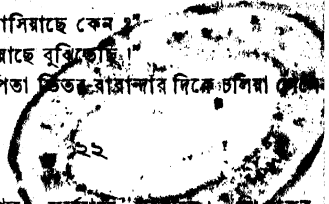 াসিয়াছে কেন ?"
য়াছে বুঝিতেছি !"
পিতা ভিতর বারান্দার দিকে চলিয়া গেলেন
২২